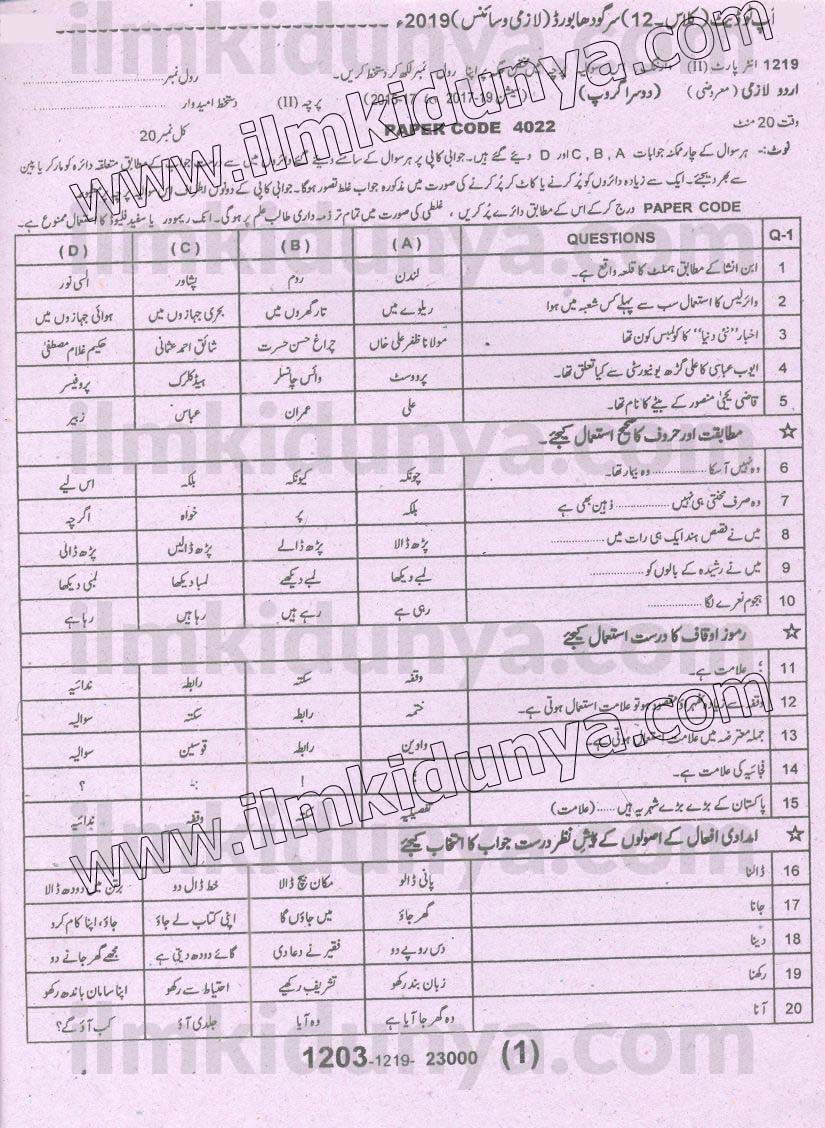 اَپ ٹو ڈیٹ (کلاس۔12) سرگودھا بورڈ (لازمی و سائنس) 2019ء
1219 انٹر پارٹ (II) اپنا رول نمبر لکھ کر دستخط کریں۔ رول نمبر
اردو لازمی (معروضی) (دوسرا گروپ) (سیشن 2015-17 تا 2017-19) پرچہ (II) دستخط امیدوار
وقت 20 منٹ PAPER CODE 4022 کل نمبر 20
نوٹ:۔ ہر سوال کے چار ممکنہ جوابات C , B , A اور D دیئے گئے ہیں۔ جوابی کاپی پر ہر سوال کے سامنے دیئے گئے دائروں میں سے درست جواب کے مطابق متعلقہ دائرہ کو مارکر یا پین
سے بھر دیجئے۔ ایک سے زیادہ دائروں کو پُر کرنے یا کاٹ کر پُر کرنے کی صورت میں مذکورہ جواب غلط تصور ہوگا۔ جوابی کاپی کے دونوں اطراف
PAPER CODE درج کر کے اس کے مطابق دائرے پُر کریں ، غلطی کی صورت میں تمام تر ذمہ داری طالب علم پر ہوگی۔ انک ریموور یا سفید فلیوڈ کا استعمال ممنوع ہے۔
Q-1 QUESTIONS ( A ) ( B ) ( C ) ( D )
1 ابن انشا کے مطابق ہملٹ کا قلعہ واقع ہے۔ لندن روم پشاور السی نور
2 وائرلیس کا استعمال سب سے پہلے کس شعبہ میں ہوا ریلوے میں تار گھروں میں بحری جہازوں میں ہوائی جہازوں میں
3 اخبار ’’نئی دنیا‘‘ کا کولمبس کون تھا مولانا ظفر علی خاں چراغ حسن حسرت شائق احمد عثمانی حکیم غلام مصطفیٰ
4 ایوب عباسی کا علی گڑھ یونیورسٹی سے کیا تعلق تھا۔ پرووسٹ وائس چانسلر ہیڈ کلرک پروفیسر
5 قاضی یحییٰ منصور کے بیٹے کا نام تھا۔ علی عمران عباس زبیر
☆ مطابقت اور حروف کا صحیح استعمال کیجئے۔
6 وہ نہیں آسکا ............ وہ بیمار تھا۔ چونکہ کیونکہ بلکہ اس لیے
7 وہ صرف محنتی ہی نہیں ............ ذہین بھی ہے بلکہ پر خواہ اگرچہ
8 میں نے قصص ہند ایک ہی رات میں ............ پڑھ ڈالا پڑھ ڈالے پڑھ ڈالیں پڑھ ڈالی
9 میں نے رشیدہ کے بالوں کو ............ لمبے دیکھا لمبے دیکھے لمبا دیکھا لمبی دیکھا
10 ہجوم نعرے لگا ............ رہی ہے رہے ہیں رہا ہیں رہا ہے
☆ رموز اوقاف کا درست استعمال کیجئے
11 ؛ علامت ہے۔ وقفہ سکتہ رابطہ ندائیہ
12 وقفہ سے زیادہ ٹھہراؤ مقصود ہو تو علامت استعمال ہوتی ہے۔ ختمہ رابطہ سکتہ سوالیہ
13 جملہ معترضہ میں علامت استعمال ہوتی ہے۔ واوین رابطہ قوسین سوالیہ
14 فجائیہ کی علامت ہے۔ ! ؟
15 پاکستان کے بڑے بڑے شہر یہ ہیں ...... (علامت) تفصیلیہ وقفہ ندائیہ
☆ امدادی افعال کے اصولوں کے پیشِ نظر درست جواب کا انتخاب کیجئے
16 ڈالنا پانی ڈالو مکان بیچ ڈالا خط ڈال دو برتن میں دودھ ڈالا
17 جانا گھر جاؤ میں جاؤں گا اپنی کتاب لے جاؤ جاؤ، اپنا کام کرو
18 دینا دس روپے دو فقیر نے دعا دی گائے دودھ دیتی ہے مجھے گھر جانے دو
19 رکھنا زبان بند رکھو تشریف رکھیے احتیاط سے رکھو اپنا سامان باندھ رکھو
20 آنا وہ گھر جا آیا ہے وہ آیا جلدی آؤ کب آؤ گے؟
1203-1219- 23000 (1)
www.ilmkidunya.com
www.ilmkidunya.com
ilmkidunya.com
ilmkidunya.com
ilmkidunya.com
ilmkidunya.com
ilmkidunya.com